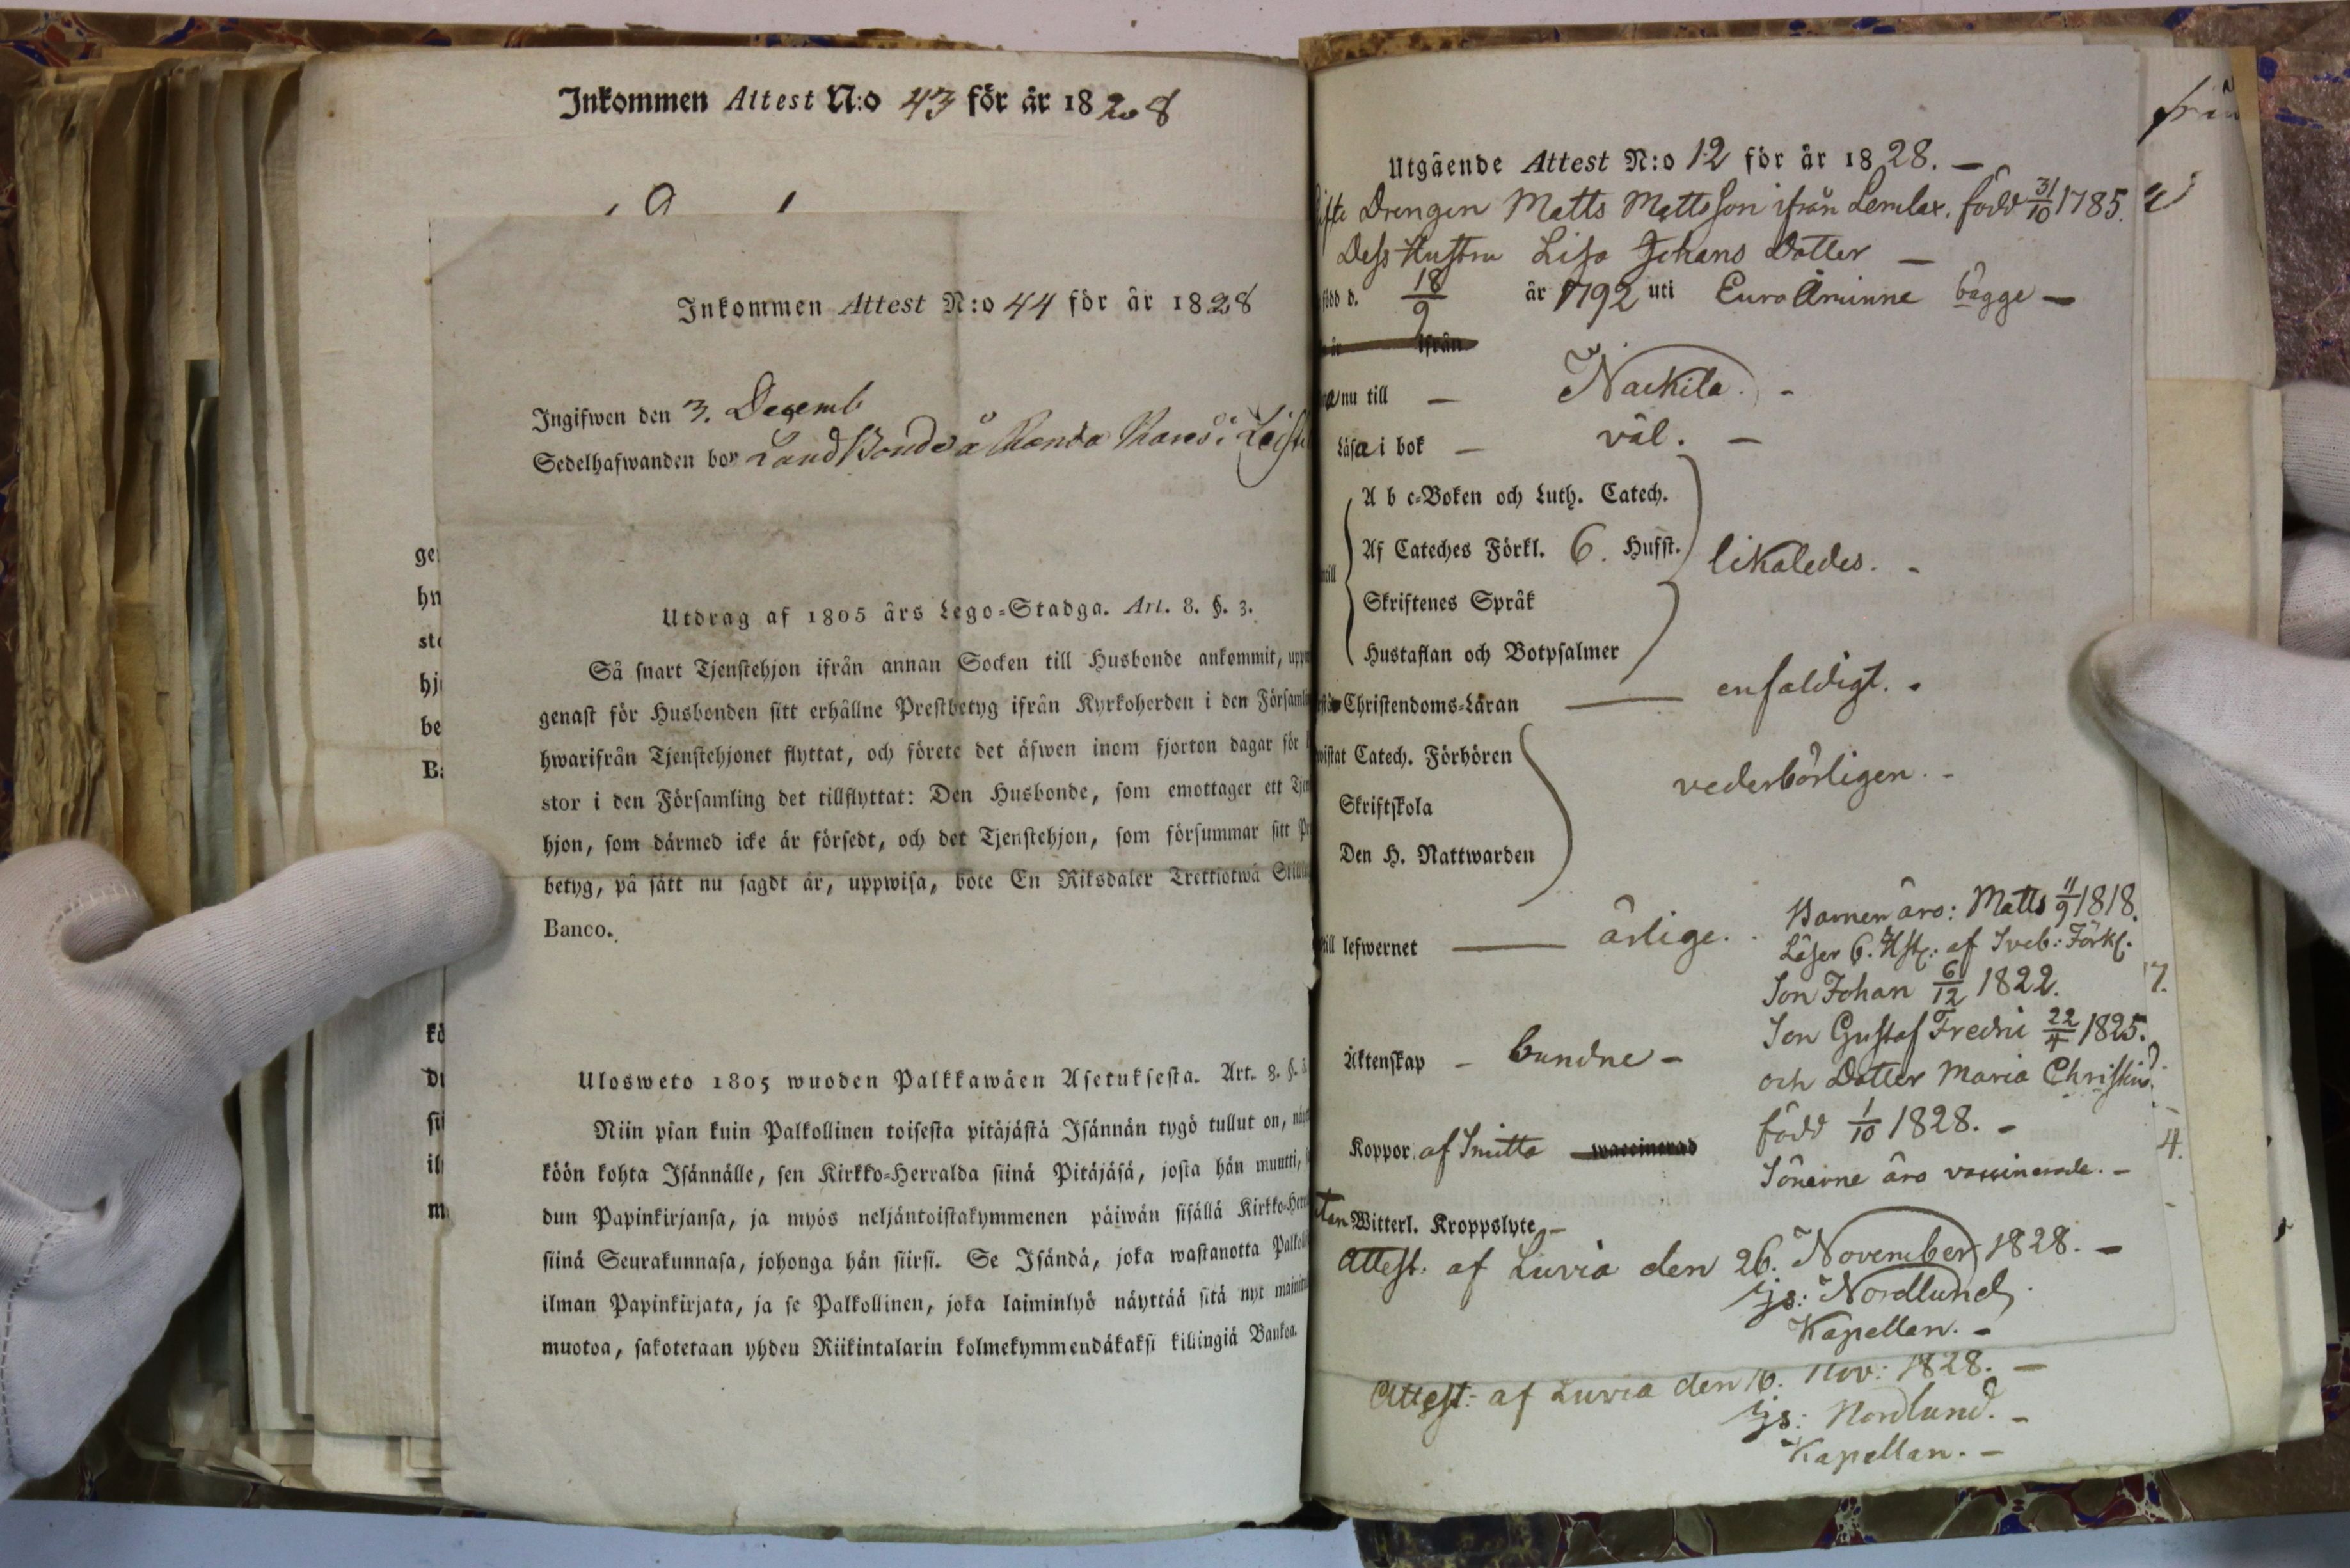 Inkommen Attest N:o 43 för år 1828
Inkommen Attest N:o 44 för år 1828
Ingifwen den 3. Decemb
Sedelhafwanden bor Land Bonde å
Utdrag af 1805 års Lego=Stadga. Art. 8. §. 3.
Så snart Tjenstehjon ifrån annan Socken till Husbonde ankommit,
genast för Husbonden sitt erhållne Prestbetyg ifrån Kyrkoherden i den
hwarifrån Tjenstehjonet flyttat, och förete det äfwen inom fjorton dagar för
stor i den Församling det tillflyttat: Den Husbonde, som emottager ett
hjon, som därmed icke är försedt, och det Tjenstehjon, som försummar sitt
betyg, på sätt nu sagdt är, uppwisa, böte En Riksdaler Trettiotwå
Banco.
Ulosweto 1805 wuoden Palkkawäen Asetuksesta. Art. 8. §.
Niin pian kuin Palkollinen toisesta pitäjästä Isännän tygö tullut on,
köön kohta Isännälle, sen Kirkko=Herralda siinä Pitäjäsä, josta hän muutti,
dun Papinkirjansa, ja myös neljäntoistakymmenen päiwän sisällä
siinä Seurakunnasa, johonga hän siirsi. Se Isändä, joka wastanotta
ilman Papinkirjata, ja se Palkollinen, joka laiminlyö näyttää sitä nyt
muotoa, sakotetaan yhden Riikintalarin kolmekymmendäkaksi killingiä Bankoa.
Utgående Attest N:o 12 för år 1828. —
Drengen Matts Mattsson ifrån Lemlax, född 31/10 1785.
Dess Hustru Lisa Johans Dotter —
född d. 18/9 år 1792 uti Euraåminne bägge —
ifrån
nu till — Nackila. -
Läsa i bok — väl. —
A b c=Boken och Luth. Catech.
Af Cateches Förkl. 6. Husst. likaledes. -
Skriftenes Språk
Hustaflan och Botpsalmer
Christendoms=Läran — enfaldigt. -
Catech. Förhören
vederbörligen. -
Skriftskola
Den H. Nattwarden
till lefwernet — ärlige.
Barnen äro: Matts 11/9 1818.
Läser 6. Hst: af Sveb: Förkl.
Son Johan 6/12 1822.
Son Gustaf Fredric 22/4 1825.
Äktenskap - bundne -
och Dotter Maria
född 1/10 1828. -
Koppor af Smitta waccinerad
Sönerne äro vaccinerade. -
utan Witterl. Kroppslyte -
Attest. af Luvia den 26. November 1828. —
Nordlund
Kapellan. -
Attest: af Luvia den 16. Nov: 1828. —
Nordlund. -
Kapellan. -